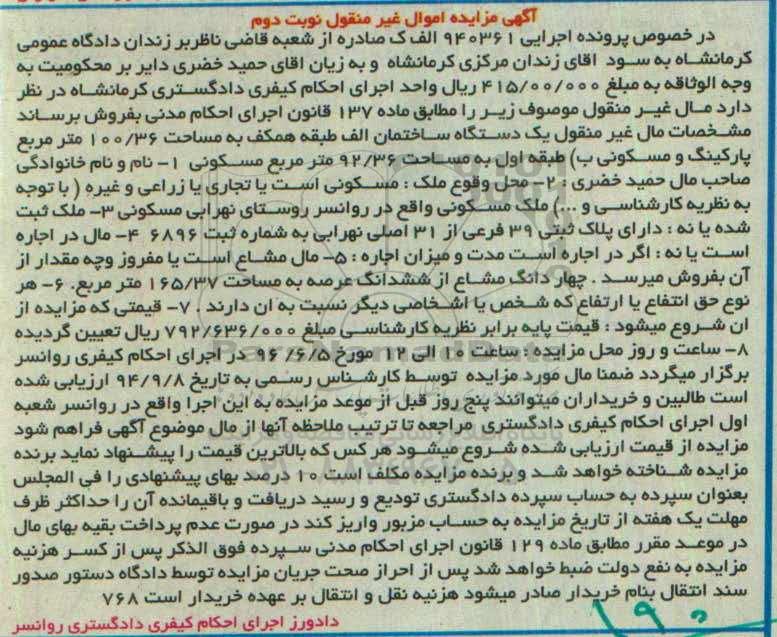 آگهی مزایده اموال غیر منقول نوبت دوم
در خصوص پرونده اجرایی ۹۴۰۳۶۱ الف ک صادره از شعبه قاضی ناظر بر زندان دادگاه عمومی
کرمانشاه به سود آقای زندان مرکزی کرمانشاه و به زیان اقای حمید خضری دایر بر محکومیت به
وجه الوثاقه به مبلغ ۴۱۵/۰۰/۰۰۰ ریال واحد اجرای احکام کیفری دادگستری کرمانشاه در نظر
دارد مال غیر منقول موصوف زیر را مطابق ماده ۱۳۷ قانون اجرای احکام مدنی بفروش برساند
مشخصات مال غیر منقول یک دستگاه ساختمان الف طبقه همکف به مساحت ۱۰۰/۳۶ متر مربع
پارکینگ و مسکونی ب) طبقه اول به مساحت ۹۲/۳۶ متر مربع مسکونی ۱- نام و نام خانوادگی
صاحب مال حمید خضری : ۲- محل وقوع ملک : مسکونی است یا تجاری یا زراعی و غیره ( با توجه
به نظریه کارشناسی و ...) ملک مسکونی واقع در روانسر روستای نهرابی مسکونی ۳- ملک ثبت
شده یا نه : دارای پلاک ثبتی ۳۹ فرعی از ۳۱ اصلی نهرابی به شماره ثبت ۶۸۹۶ ۴- مال در اجاره
است یا نه : اگر در اجاره است مدت و میزان اجاره : ۵- مال مشاع است یا مفروز وچه مقدار از
آن بفروش میرسد . چهار دانگ مشاع از ششدانگ عرصه به مساحت ۱۶۵/۳۷ متر مربع. ۶- هر
نوع حق انتفاع یا ارتفاع که شخص یا اشخاصی دیگر نسبت به ان دارند . ۷- قیمتی که مزایده از
ان شروع میشود : قیمت پایه برابر نظریه کارشناسی مبلغ ۷۹۲/۶۳۶/۰۰۰ ریال تعیین گردیده
۸- ساعت و روز محل مزایده : ساعت ۱۰ الی ۱۲ مورخ ۹۶/۶/۵ در اجرای احکام کیفری روانسر
برگزار میگردد ضمنا مال مورد مزایده توسط کارشناس رسمی به تاریخ ۹۴/۹/۸ ارزیابی شده
است طالبین و خریداران میتوانند پنج روز قبل از موعد مزایده به این اجرا واقع در روانسر شعبه
اول اجرای احکام کیفری دادگستری مراجعه تا ترتیب ملاحظه آنها از مال موضوع آگهی فراهم شود
مزایده از قیمت ارزیابی شده شروع میشود هر کس که بالاترین قیمت را پیشنهاد نماید برنده
مزایده شناخته خواهد شد و برنده مزایده مکلف است ۱۰ درصد بهای پیشنهادی را فی المجلس
بعنوان سپرده به حساب سپرده دادگستری تودیع و رسید دریافت و باقیمانده آن را حداکثر ظرف
مهلت یک هفته از تاریخ مزایده به حساب مزبور واریز کند در صورت عدم پرداخت بقیه بهای مال
در موعد مقرر مطابق ماده ۱۲۹ قانون اجرای احکام مدنی سپرده فوق الذکر پس از کسر هزینه
مزایده به نفع دولت ضبط خواهد شد پس از احراز صحت جریان مزایده توسط دادگاه دستور صدور
سند انتقال بنام خریدار صادر میشود هزینه نقل و انتقال بر عهده خریدار است ۷۶۸
دادورز اجرای احکام کیفری دادگستری روانسر